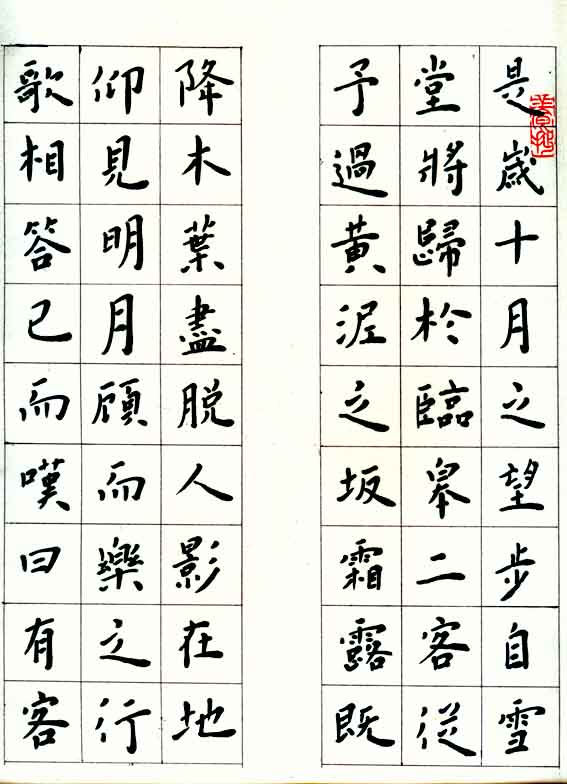 是歲十月之望步自雪
堂將歸於臨皋二客從
予過黃泥之坂霜露既
降木葉盡脫人影在地
仰見明月顧而樂之行
歌相答已而嘆曰有客